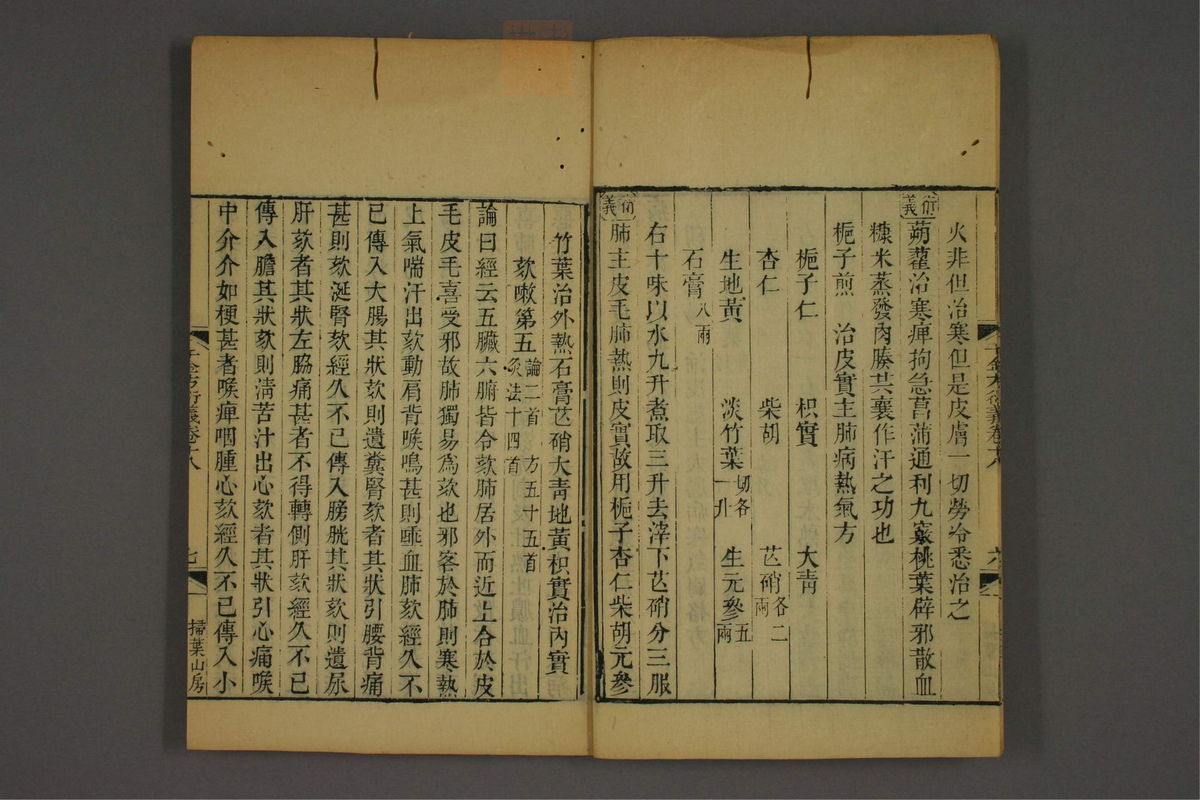 火非但治寒但是皮膚一切勞冷悉治之
衍義 蒴藋治寒痺拘急菖蒲通利九竅桃葉辟邪散血
糠米蒸發肉腠共襄作汗之功也
梔子煎　治皮實主肺病熱氣方
梔子仁　枳實　大青
杏仁　柴胡　芒硝各二兩
生地黃　淡竹葉切各一升　生元參五兩
石膏八兩
右十味以水九升煮取三升去滓下芒硝分三服
衍義 肺主皮毛肺熱則皮實故用梔子杏仁柴胡元參
竹葉治外熱石膏芒硝大靑地黃枳實治內實
欬嗽第五論二首　方五十五首　灸法十四首
論曰經云五臟六腑皆令欬肺居外而近上合於皮
毛皮毛喜受邪故肺獨易爲欬也邪客於肺則寒熱
上氣喘汗出欬動肩背喉鳴甚則唾血肺欬經久不
已傳入大腸其狀欬則遺糞腎欬者其狀引腰背痛
甚則欬涎腎欬經久不已傳入膀胱其狀欬則遺尿
肝欬者其狀左脇痛甚者不得轉側肝欬經久不已
傳入膽其狀欬則淸苦汁出心欬者其狀引心痛喉
中介介如梗甚者喉痺咽腫心欬經久不已傳入小
千金方衍義卷十八
七
掃葉山房